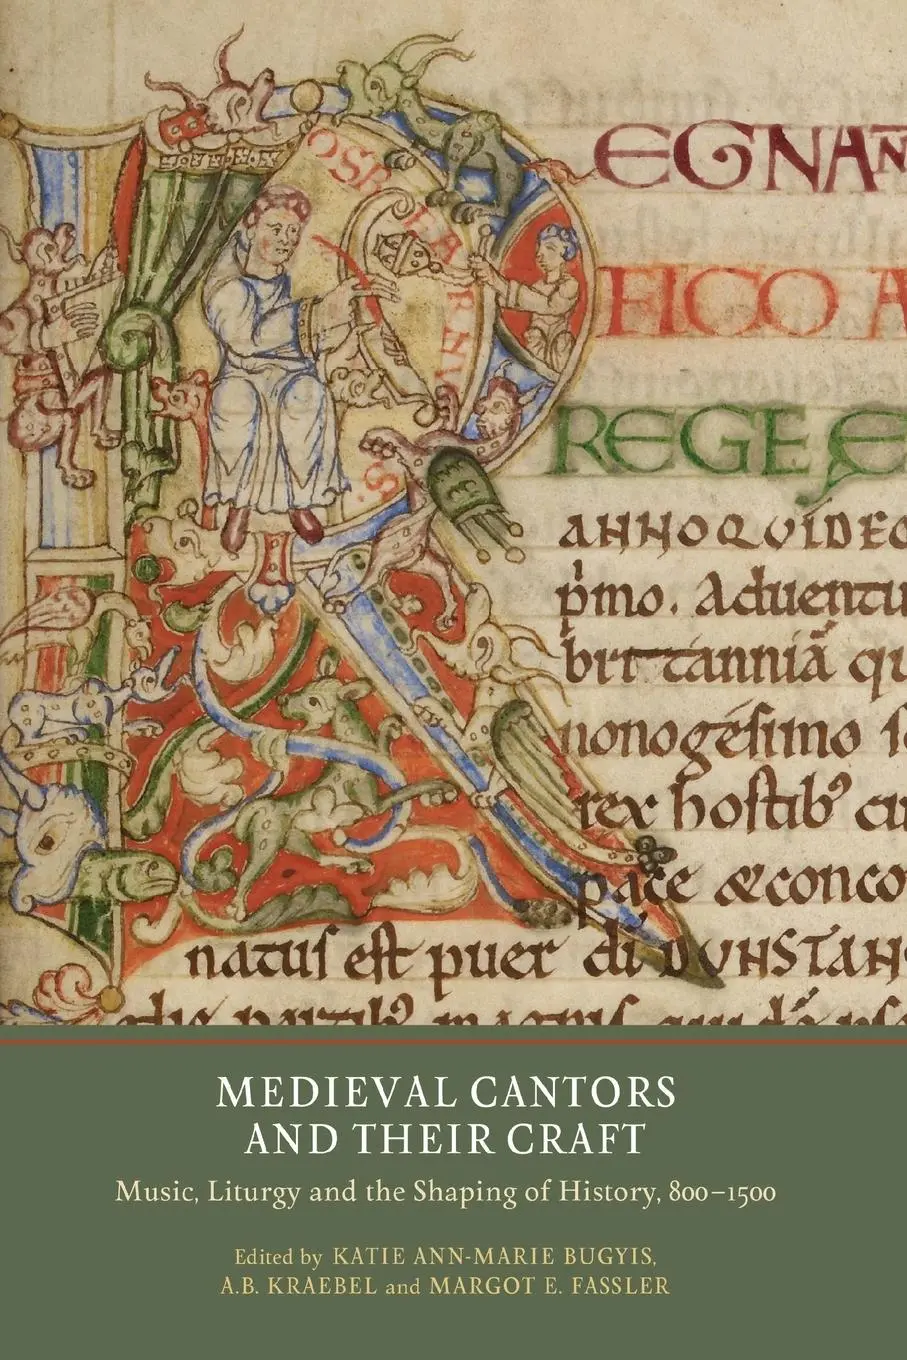 OSB
LA
EGNAÑ
FICO A
REGE E
ANNOQVIDEO
p̄mo. Aduentu
britanniā qu
nonogésimo s
rex hostibꝰ cu
pace &conco
natus est puer dī DUNSTAN
MEDIEVAL CANTORS
AND THEIR CRAFT
Music, Liturgy and the Shaping of History, 800–1500
Edited by KATIE ANN-MARIE BUGYIS,
A.B. KRAEBEL and MARGOT E. FASSLER